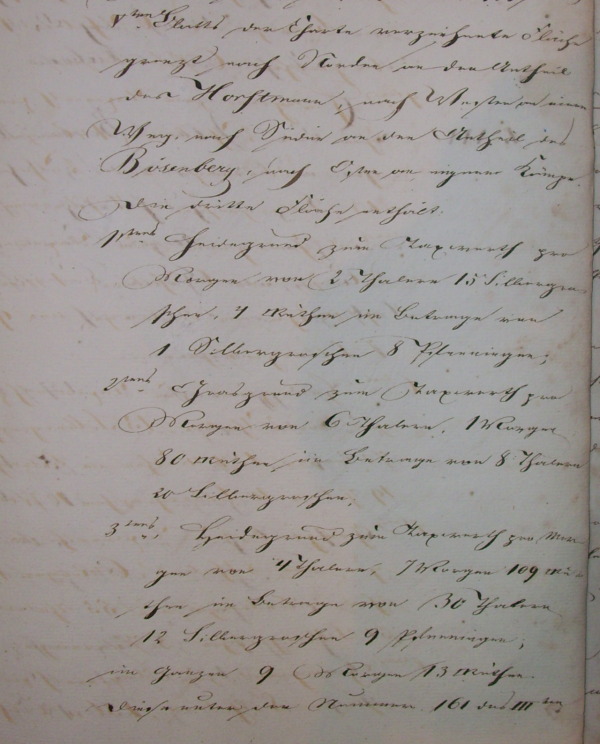 Vten Blatts der Charte verzeichnete Fläche
grenzt nach Norden an den Antheil
des Horstmann, nach Westen an einen
Weg, nach Süden an den Antheil des
Bösenberg, nach Osten an eigene Kämpe.
Die dritte Fläche enthält.
1tens Heidegrund zum Taxwerth pro
Morgen von 2 Thalern 15 Silbergro-
schen, 4 Ruthen im Betrage von
1 Silbergroschen 8 Pfenningen;
2tens Grasgrund zum Taxwerth pro
Morgen von 6 Thalern, 1 Morgen
80 Ruthen im Betrage von 8 Thalern
20 Silbergroschen,
3tens, Heidegrund zum Taxwerth pro Mor-
gen von 4 Thalern, 7 Morgen 109 Ru-
then im Betrage von 30 Thalern
12 Silbergroschen 9 Pfenningen;
im Ganzen 9 Morgen 13 Ruthen.
Diese unter den Nummern 161 des IIIten